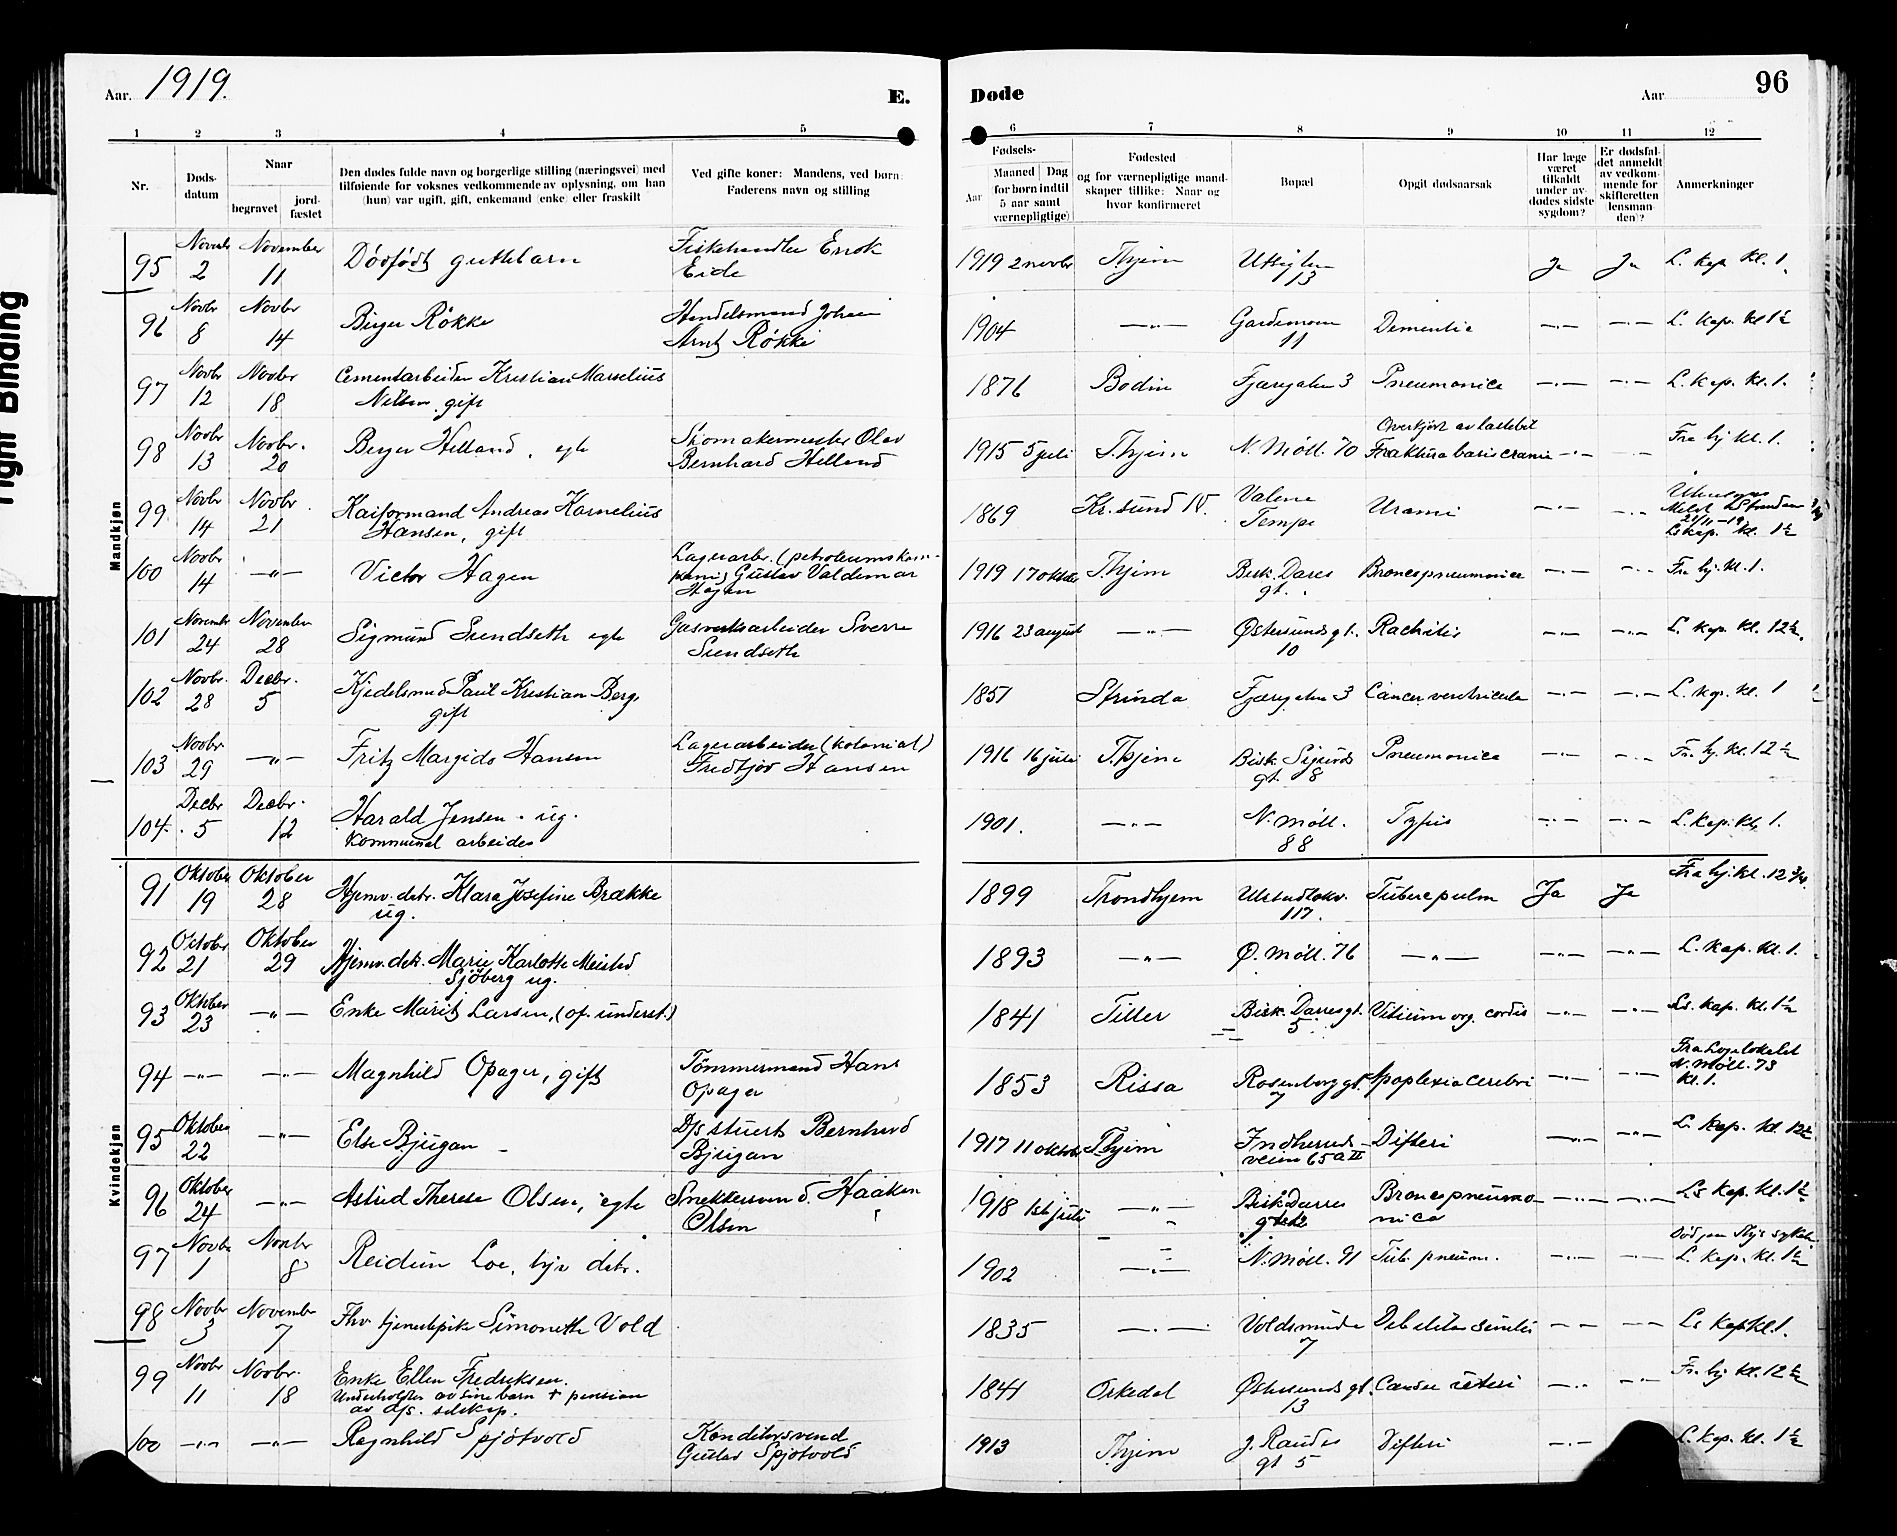 Aar. 1919.
E.
Døde
Aar
96
1
2
3
4
5
6
7
8
9
10
11
12
Nr.
Døds-
datum
Naar
begravet
jord-
fæstet
Den dødes fulde navn og borgerlige stilling (næringsvei) med
tilføiende for voksnes vedkommende av oplysning, om han
(hun) var ugift, gift, enkemand (enke) eller fraskilt
Ved gifte koner: Mandens, ved børn:
Faderens navn og stilling
Fødsels-
Aar
Maaned | Dag
(for børn indtil
5 aar samt
værnepligtige)
Fødested
og for værnepligtige mand-
skaper tillike: Naar og
hvor konfirmeret
Bopæl
Opgit dødsaarsak
Har læge
været
tilkaldt
under av-
dødes sidste
sygdom?
Er dødsfal-
det anmeldt
av vedkom-
mende for
skifteretten
(lensman-
den)?
Anmerkninger
Tight Binding
Mandkjøn
95
2
November
11
Dødfødt guttebarn
Fiskehandler Enok
Eide
1919 2 novbr
Thjem
13
Ja
Ja
L. kap. Kl. 1.
96
Novbr
8
Novbr
14
Birger Røkke
Handelsmand Johan
Arnt Røkke
1904
—"—
11
Dementia
—"—
—"—
L. kap. Kl 1½
97
Novbr
12
Novbr
18
Cementarbeider Kristian Marselius
Nilsen, gift
1876
Bodin
Fjærgaten 3
Pneumonica
—"—
—"—
L. kap. Kl. 1.
98
Novbr
13
Novbr.
20
Berger Helland, egte
Skomakermester Olav
Bernhard Helland
1915 5 juli
T.hjem
N. Møll. 70
Overkjørt av lastebil
Fraktura basis cranii
—"—
—"—
Fra hj. kl. 1.
99
Novbr
14
Novbr
21
Kaiformand Andreas Kornelius
Hansen, gift
1869
Kr. sund N.
Tempe
Urami
—"—
—"—
L. kap. kl. 1½
100
Novbr
14
—"—
Victor Hagen
Lagerarb. (petroleumskom-
pani) Gustav Valdemar
Hagen
1919 17 oktbr
T.hjem
Bisk. Dares
gt.
Broncopneumonica
—"—
—"—
Fra hj. kl. 1.
101
Novembr
24
November
28
Sigmund Svendseth egte
Gasverksarbeider Sverre
Svendseth
1916 23 august
—"—
Østersunds gt.
10
Rachitis
—"—
—"—
L. kap. Kl. 12½.
102
Novbr.
28
Decbr.
5
Kjedelsmed Paul Kristian Berg,
gift
1851
Strinda
Fjærgaten 3
Cancer ventriculi
—"—
—"—
L. kap. kl. 1
103
Novbr
29
—"—
Fritz Margido Hansen
Lagerarbeider (kolonial)
Fredtjov Hansen
1916 16 juli
T.hjem
Bisk. Sigurds
gt. 8
Pneumonica
—"—
—"—
Fra hj. kl. 12½
104.
Decbr
5
Decbr.
12
Harald Jensen. ug.
Kommunal arbeider
1901.
—"—
N. Møll.
88
Tyfus
—"—
—"—
L. kap. kl. 1.
Kvindekjøn
91
Oktober
19
Oktober
28
Hjemv. datr. Klara Josefine Brække
ug.
1899
Trondhjem
117.
Tuberc pulm
Ja
Ja
Fra hj. kl. 12¾.
92
Octobr
21
Oktober
29
Hjemv. datr. Marie Karlotte Meisted
Sjöberg ug.
1893
—"—
Ø. Møll. 76
—"—
—"—
—"—
L. kap. kl. 1.
93
Oktober
23
—"—
Enke Marit Larsen, (of. underst.)
1841
Tiller
Bisk. Darres gt.
5
Vitium org. cordis
—"—
—"—
Ls. kap. kl. 1½
94
—"—
—"—
Magnhild Opager, gift
Tömmermand Hans
Opager
1853
Rissa
Rosenborg gt.
7
Apoplexia cerebri
—"—
—"—
Fra Logelokalet
N. Møll. 73
kl. 1.
95
Oktober
22
—"—
Else Bjugan
D/s stuert Bernhard
Bjugan
1917 11 oktobr
T.hjem
Indherreds-
veien 65a II
Difteri
—"—
—"—
L. kap. kl. 12½
96
Oktober
24
—"—
Astrid Therese Olsen, egte
Snekkersvend. Haakon
Olsen
1918 1st juli
—"—
Bisk Darres
Broncopneumo-
nica
—"—
—"—
Ls kap. kl. 1½
97
Novbr
1
Novbr
8
Reidun Loe, hjv datr.
1902
—"—
N. Møll. 91
Tub. pneum.
—"—
—"—
L. kap. kl. 1½
98
Novbr
3
November
7
Fhv tjenestpike Simonette Vold
1835
—"—
Voldsminde
7
Debilitas senilis
—"—
—"—
Ls kap kl 1.
99
Novbr
11
Novbr.
18
Enke Ellen Fredriksen.
Underholdes av sine barn + pension
av d/s. selskap.
1841
Orkedal
Østersunds gt.
13
Cancer uteri
—"—
—"—
Fr. hj. kl. 12½
100
—"—
—"—
Ragnhild Spjøtvold
Konditorsvend
Gustav Spjøtvold
1913
T.hjem
J. Raudes
gt 5
Difteri
—"—
L. kap. kl. 1½